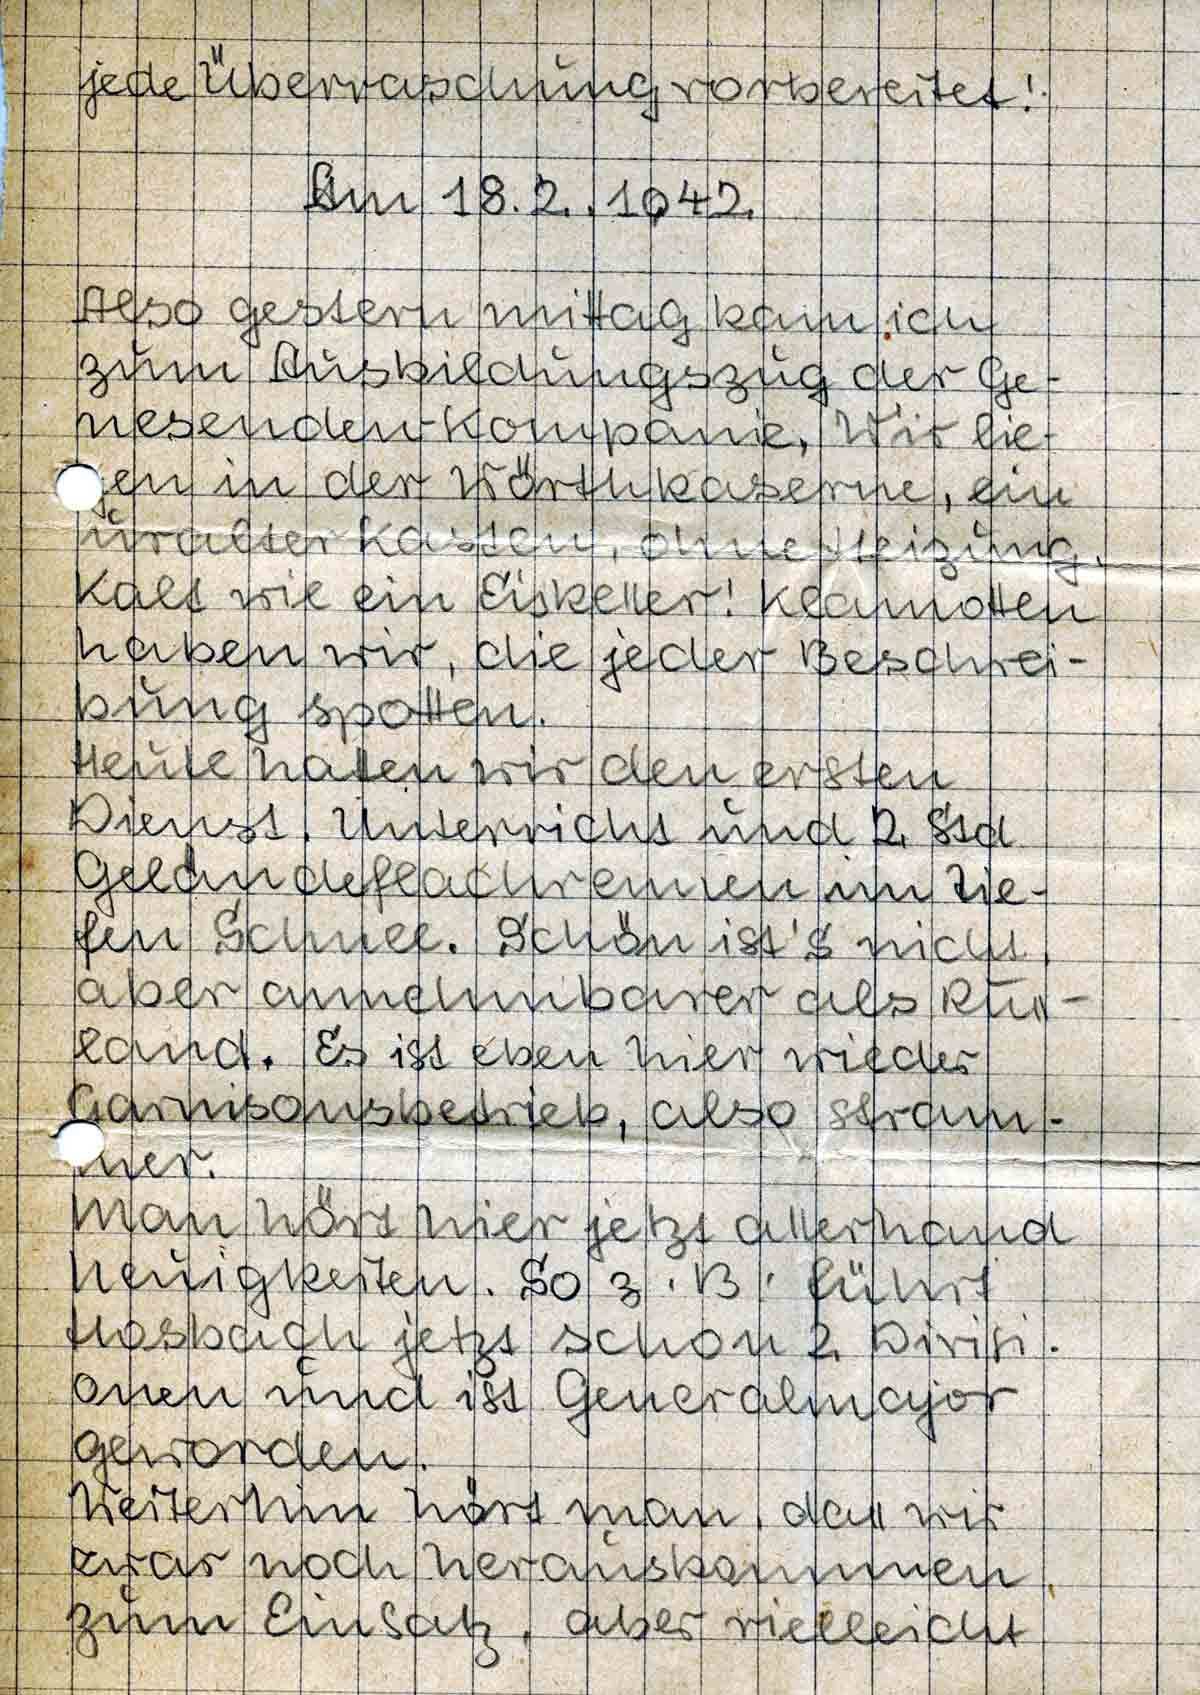 jede Überraschung vorbereitet!
Am 18.2.1942.
Also gestern mittag kam ich
zum Ausbildungszug der Ge-
nesenden-Kompanie, Wir lie-
gen in der Wörthkaserne, ein
uralter Kasten, ohne Heizung.
Kalt wie ein Eiskeller! Klamotten
haben wir, die jeder Beschrei-
bung spotten.
Heute hatten wir den ersten
Dienst. Unterricht und 2 Std
Geländeflachrennen im tie-
fen Schnee. Schön ist's nicht,
aber annehmbarer als Ruß-
land. Es ist eben hier wieder
Garnisonsbetrieb, also stram-
mer.
Man hört hier jetzt allerhand
Neuigkeiten. So z.B. führt
Hosbach jetzt schon 2 Divisi-
onen und ist Generalmajor
geworden.
Weiterhin hört man, daß wir
zwar noch herauskommen
zum Einsatz, aber vielleicht